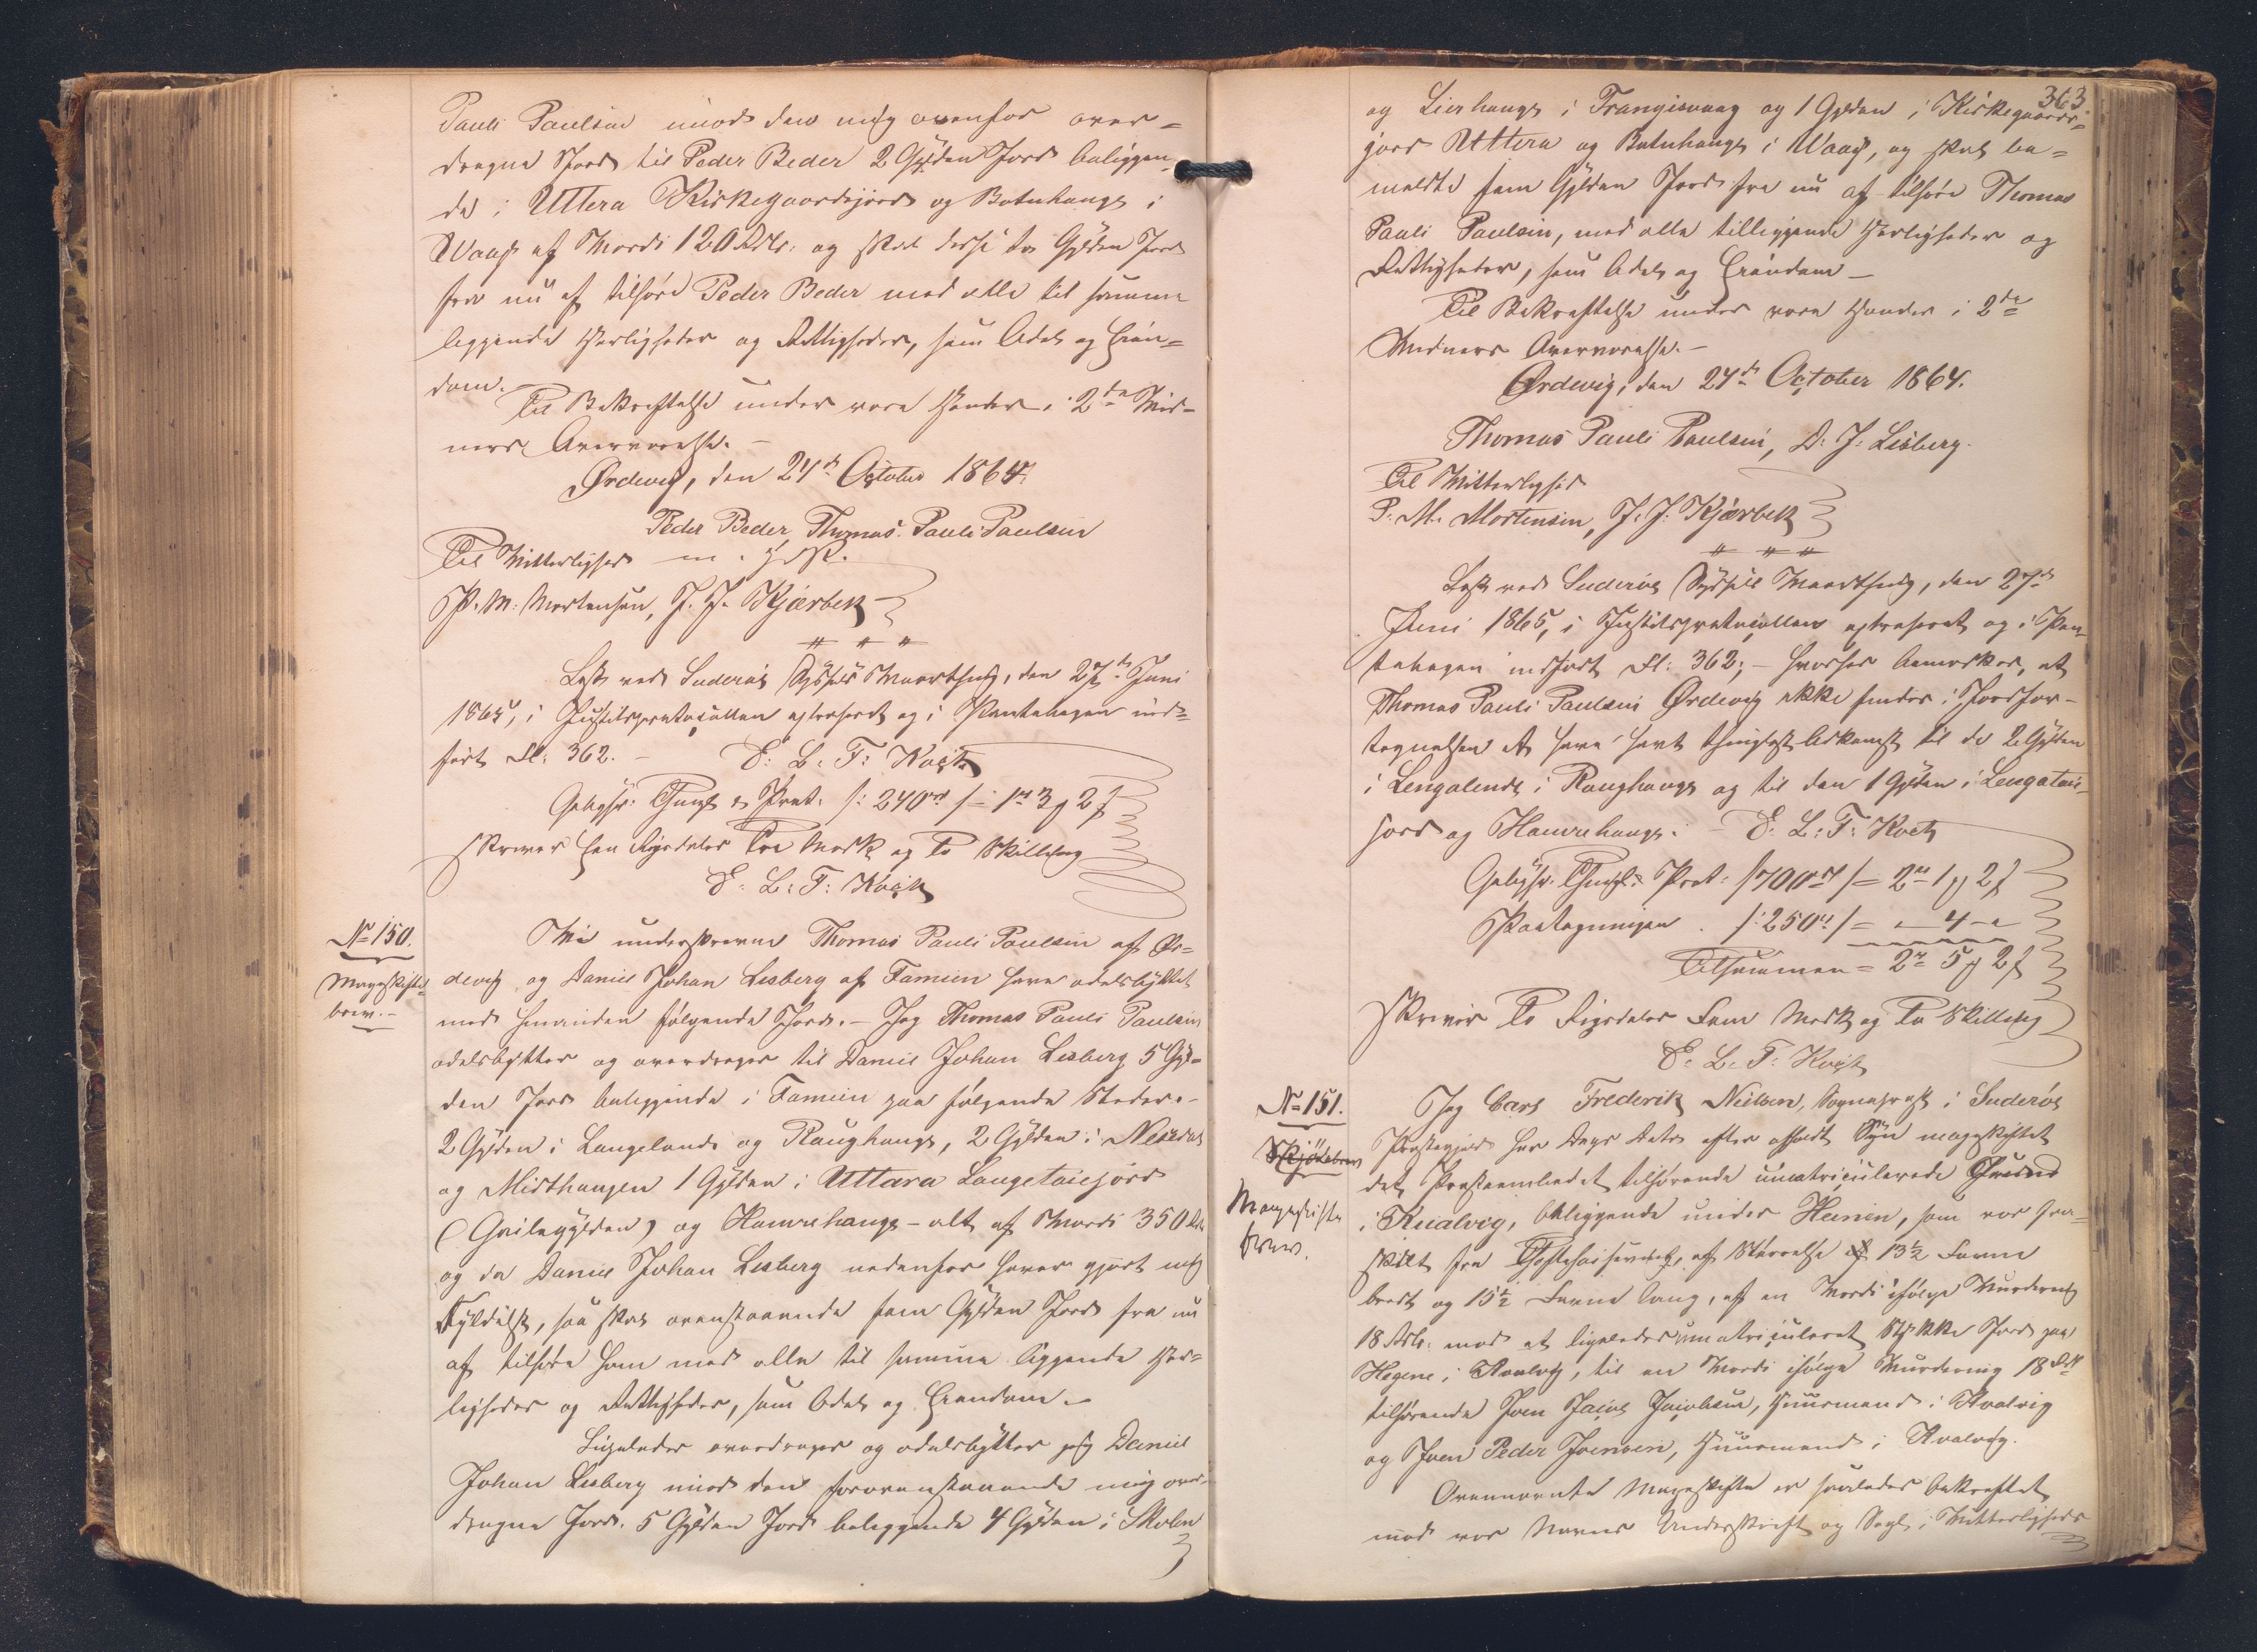 Pauli Paulsen imod den mig ovenfor over=
dragne Jord til Peder Beder 2 Gylden Jord beliggen-
de i Uttera Kirkegaardsjord og Botnhauge i
Waag af Værdi 120 Rdlr. og skal disse to Gylden Jord
fra nu af tilhøre Peder Beder med alle til samme
liggende Herligheder og Rettigheder, som Odel og Eien=
dom.
Til Bekræftelse under vore Hænder i 2de Vid-
ners Overværelse. -
Ørdevig, den 24de October 1864.
Peder Beder, Thomas Pauli Paulsen
Til Vitterlighed m. f. P.
P. M. Mortensen, J. J. Kjærbek
Læst ved Suderøe Syssels Vaarthing, den 27de Juni
1865, i Justitsprotocollen extraheret og i Pantebogen ind=
ført Fl. 362. - E. L. T. Kock
Gebyhr: Thingl. & Prot. /: 240rd /= 1rd 3 m 2 s
skriver Een Rigsdaler Tre Mark og To Skilling
E. L. T. Kock
No 150.
Mageskifte=
brev. -
Vi underskrevne Thomas Pauli Paulsen af Ør=
devig og Daniel Johan Lisberg af Famien have odelsbyttet
med hinanden følgende Jord. - Jeg Thomas Pauli Paulsen
odelsbytter og overdrager til Daniel Johan Lisberg 5 Gyl=
den Jord beliggende i Famien paa følgende Steder. -
2 Gylden i Langelands og Raughauge, 2 Gylden i
og Midthaugen 1 Gylden i Uttara Langetaiejord
(Geilegylden) og Hamrehauge - alt af Værdi 350 Rd
og da Daniel Johan Lisberg nedenfor haver gjort mig
Fyldest, saa skal ovenstaaende fem Gylden Jord fra nu
af tilhøre ham med alle til samme liggende Her=
ligheder og Rettigheder, som Odel og Eiendom. -
Ligeledes overdrager og odelsbytter jeg Daniel
Johan Lisberg imod den forovenstaaende mig over-
dragne Jord. 5 Gylden Jord beliggende 4 Gylden i Skolen
363.
og Lierhauge i Frangisvaag og 1 Gylden i Kirkegaards=
jord Uttera og Botnhauge i Waag, og skal be=
meldte fem Gylden Jord fra nu af tilhøre Thomas
Pauli Paulsen, med alle tilliggende Herligheder og
Rettigheder, som Odel og Eiendom -
Til Bekræftelse under vore Hænder i 2de
Vidners Overværelse. -
Ørdevig, den 24de October 1864.
Thomas Pauli Paulsen, D. J. Lisberg.
Til Vitterlighed
P. M. Mortensen, J. J. Kjærbek
Læst ved Suderøe Syssels Vaarthing, den 27de
Juni 1865, i Justitsprotocollen extraheret og i Pan-
tebogen indført Fl: 362; - hvorhos bemærkes, at
Thomas Pauli Paulsen Ørdevig ikke findes i Jordfor-
tegnelsen at have havt thinglæst Adkomst til de 2 Gylden
i Lengelends i Raughauge og til den 1 Gylden i Lengetaie-
jord og Hamrehauge. - E. L. T. Kock
Gebyhr. Thingl. & Prot: /700rd /= 2rd 1 m 2 s
Paategningen . /: 250rd /= " 4 - "
Tilsammen = 2rd 5 m 2 s
skriver To Rigsdaler Fem Mark og To Skilling
E. L. T. Kock
No 151.
Skjødebrev
Mageskifte
brev.
Jeg Carl Frederik Nielsen, Sognepræst i Suderøe
Præstegjeld har Dags Dato efter afholdt Syn mageskiftet
det Præsteembedet tilhørende umatriculerede Grund
i Kualvig, beliggende under Heinen, som var fra=
skilt fra af Størrelse af 13½ Favne
bredt og 15½ Favne lang, af en Værdi ifølge Vurdering
18 Rdlr. mod et ligeledes umatriculeret Stykke Jord paa
Hegene i Kvalvig, til en Værdi ifølge Vurdering 18 Rdlr
tilhørende Joen Jacob Jacobsen, Huusmand i Kvalvig
og Joen Peder Joensen, Huusmand i Kvalvig.
Ovennævnte Mageskifte er saaledes bekræftet
med vor Navns Underskrift og Segl i Vitterligheds